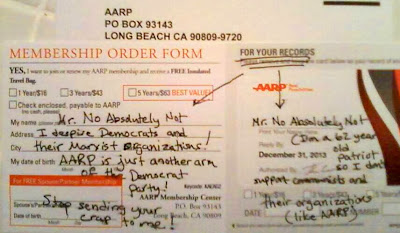 AARP
PO BOX 93143
LONG BEACH CA 90809-9720
MEMBERSHIP ORDER FORM
YES, I want to join or renew my AARP membership and receive a FREE Insulated
Travel Bag.
1 Year/$16
3 Years/$43
5 Years/$63 BEST VALUE!
Check enclosed, payable to AARP
(no cash, please)
My name
Mr. No Absolutely Not
Address
I despise Democrats and
City
their Marxist Organizations!
My date of birth
AARP is just another arm
of the Democrat
Party!
FOR Free Spouse/Partner Membership
Keycode:
AARP Membership Center
Long Beach, CA 90809
Spouse's/Partner's
Date of Birth
Stop sending your
crap to me!
FOR YOUR RECORDS
AARP
Mr. No Absolutely, Not
(I'm a 62 year
old
Reply by
December 31, 2013
Patriot
Authorized By
so I don't
support communists and
their organizations
(like AARP)